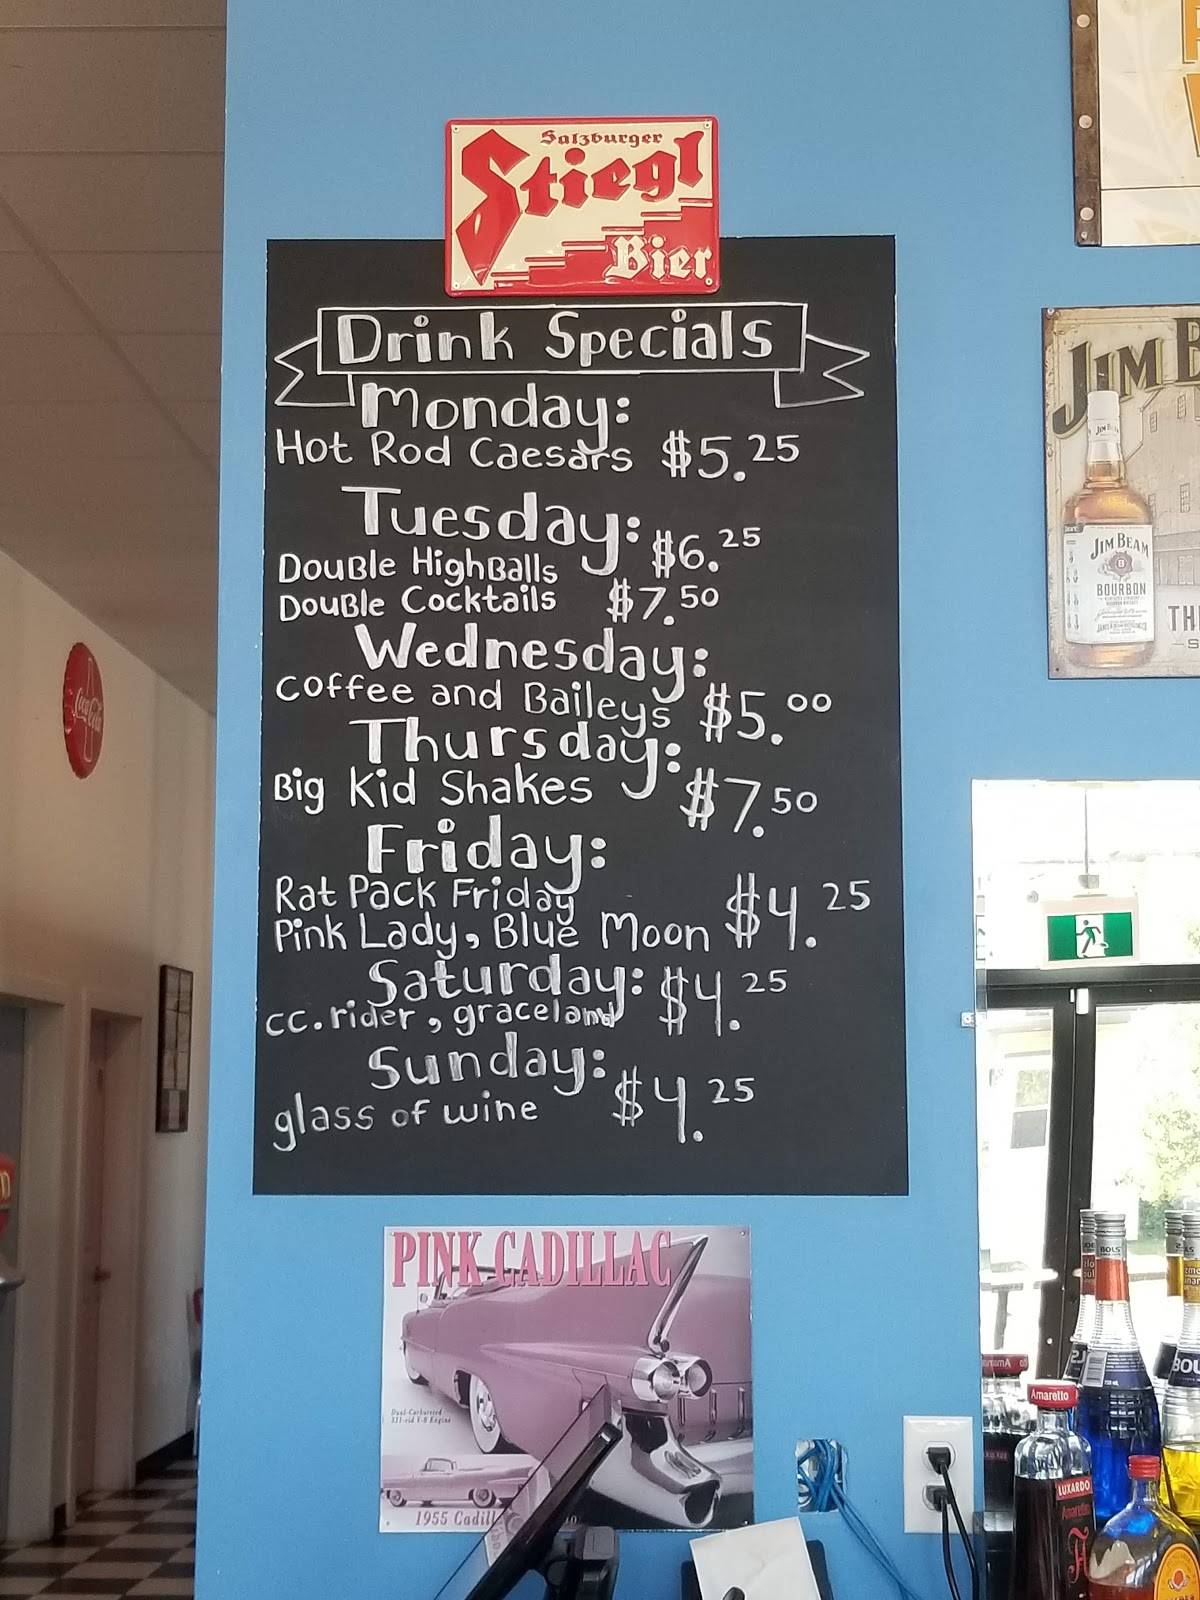 Salzburger
Stiegl
Bier
Drink Specials
Monday:
Hot Rod Caesars $5.25
Tuesday:
Double HighBalls $6.25
Double Cocktails $7.50
Wednesday:
Coffee and Baileys $5.00
Thursday:
Big Kid Shakes $7.50
Friday:
Rat Pack Friday
Pink Lady, Blue Moon $4.25
Saturday:
cc.rider, graceland $4.25
Sunday:
glass of wine $4.25
PINK CADILLAC
Dual-Carbureted
331-cid V-8 Engine
1955 Cadill
Coca-Cola
JIM B
JIM BEAM
BOURBON
TH
BOLS
BOU
Amaretto
LUXARDO
Amaretto